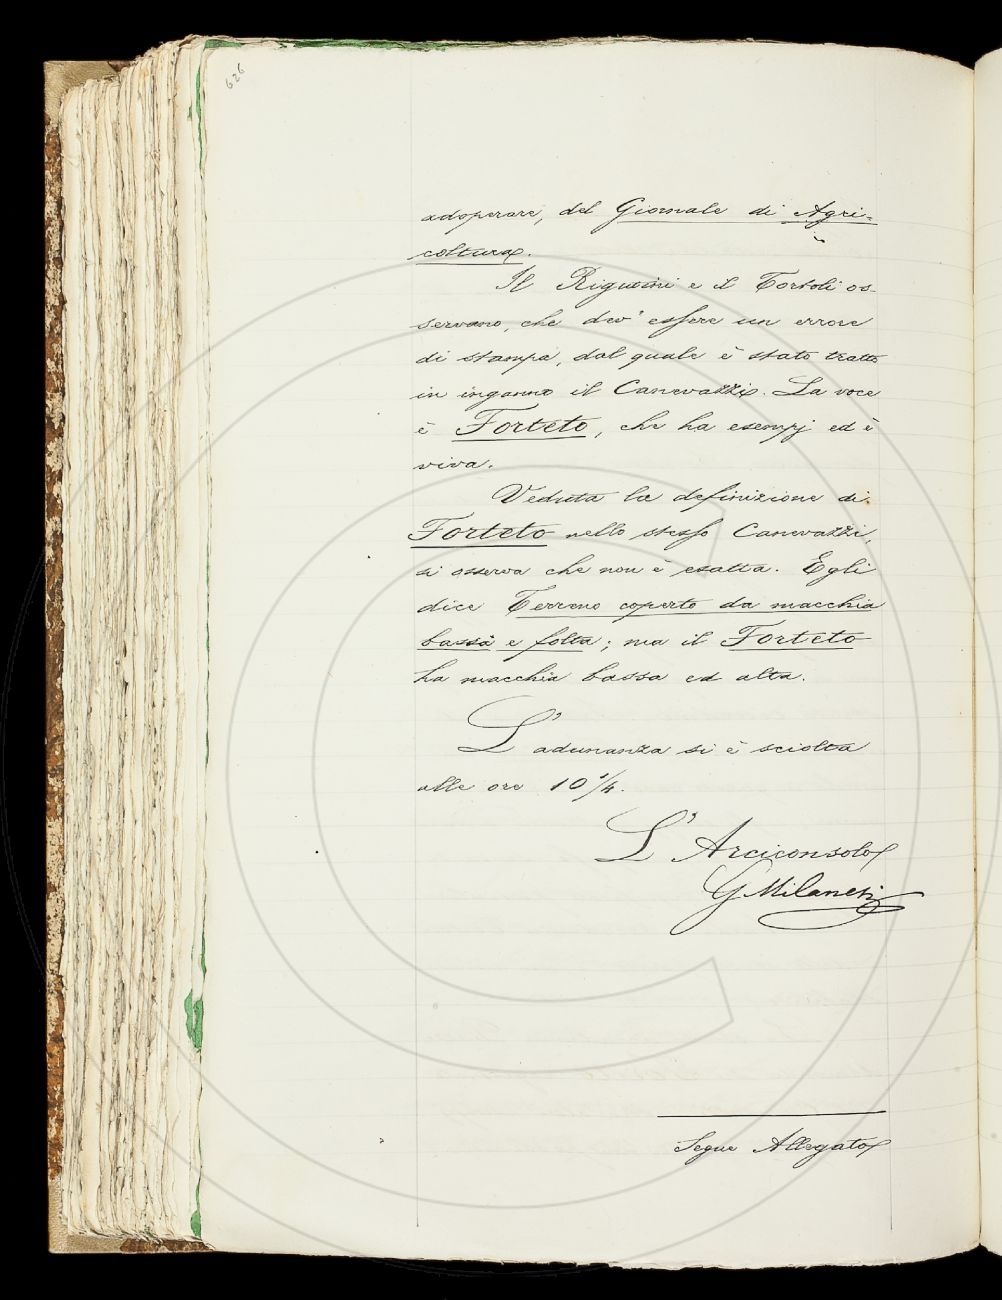 626
adoperare, del Giornale di Agri-
coltura.
Il Rigutini e il Tortoli os-
servano, che dev' essere un errore
di stampa, dal quale è stato tratto
in inganno il Canevazzi. La voce
è Forteto, che ha esempj ed è
viva.
Veduta la definizione di
Forteto nello stesso Canevazzi,
si osserva che non è esatta. Egli
dice Terreno coperto da macchia
bassa e folta; ma il Forteto
ha macchia bassa ed alta.
L' adunanza si è sciolta
alle ore 10 1/4.
L' Arciconsolo
G Milanesi
Segue Allegato